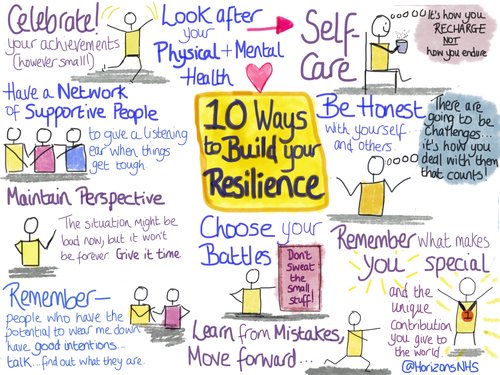 10 Ways
to Build your
Resilience
Celebrate!
your achievements
(however small!)
Look after
your
Physical + Mental
Health
Self-
Care
It's how you
RECHARGE
NOT
how you endure
Have a Network
of Supportive People
to give a listening
ear when things
get tough.
Be Honest
with yourself
and others.
There are
going to be
challenges...
it's how you
deal with them
that counts!
Maintain Perspective
The situation might be
bad now, but it won't
be forever. Give it time.
Choose your
Battles
Don't
sweat
the
small
stuff!
Remember what makes
you special
and the
unique
contribution
you give to
the world.
Remember—
people who have the
potential to wear me down
have good intentions...
talk...find out what they are.
Learn from Mistakes,
Move forward...
@HorizonsNHS